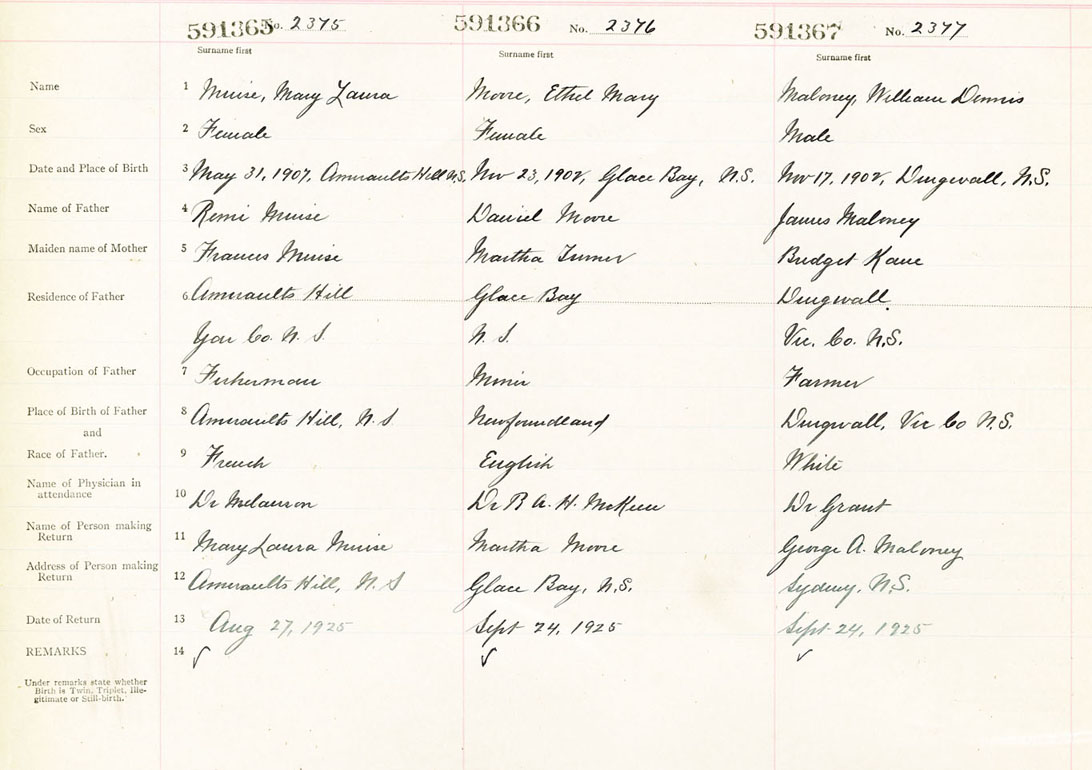 591365 No. 2375 591366 No. 2376 591367 No. 2377
Surname first Surname first Surname first
Name 1 Muise, Mary Laura Moore, Ethel Mary Maloney, William Dennis
Sex 2 Female Female Male
Date and Place of Birth 3 May 31, 1907, Amiraults Hill N.S. Nov 23, 1902, Glace Bay, N.S. Nov 17, 1902, Dingwall, N.S.
Name of Father 4 Remi Muise Daniel Moore James Maloney
Maiden name of Mother 5 Frances Muise Martha Turner Bridget Kane
Residence of Father 6 Amiraults Hill Glace Bay Dingwall
Yar Co. N. S. N. S. Vic. Co. N.S.
Occupation of Father 7 Fisherman Miner Farmer
Place of Birth of Father 8 Amiraults Hill, N.S Newfoundland Dingwall, Vic Co N.S.
and
Race of Father. 9 French English White
Name of Physician in
attendance 10 Dr Melanson Dr R A. H. McKeen Dr Grant
Name of Person making
Return 11 Mary Laura Muise Martha Moore George A. Maloney
Address of Person making
Return 12 Amiraults Hill, N. S Glace Bay, N.S. Sydney, N.S.
Date of Return 13 Aug 27, 1925 Sept 24, 1925 Sept 24, 1925
REMARKS 14 ✓ ✓ ✓
Under remarks state whether
Birth is Twin, Triplet, Ille-
gitimate or Still-birth.